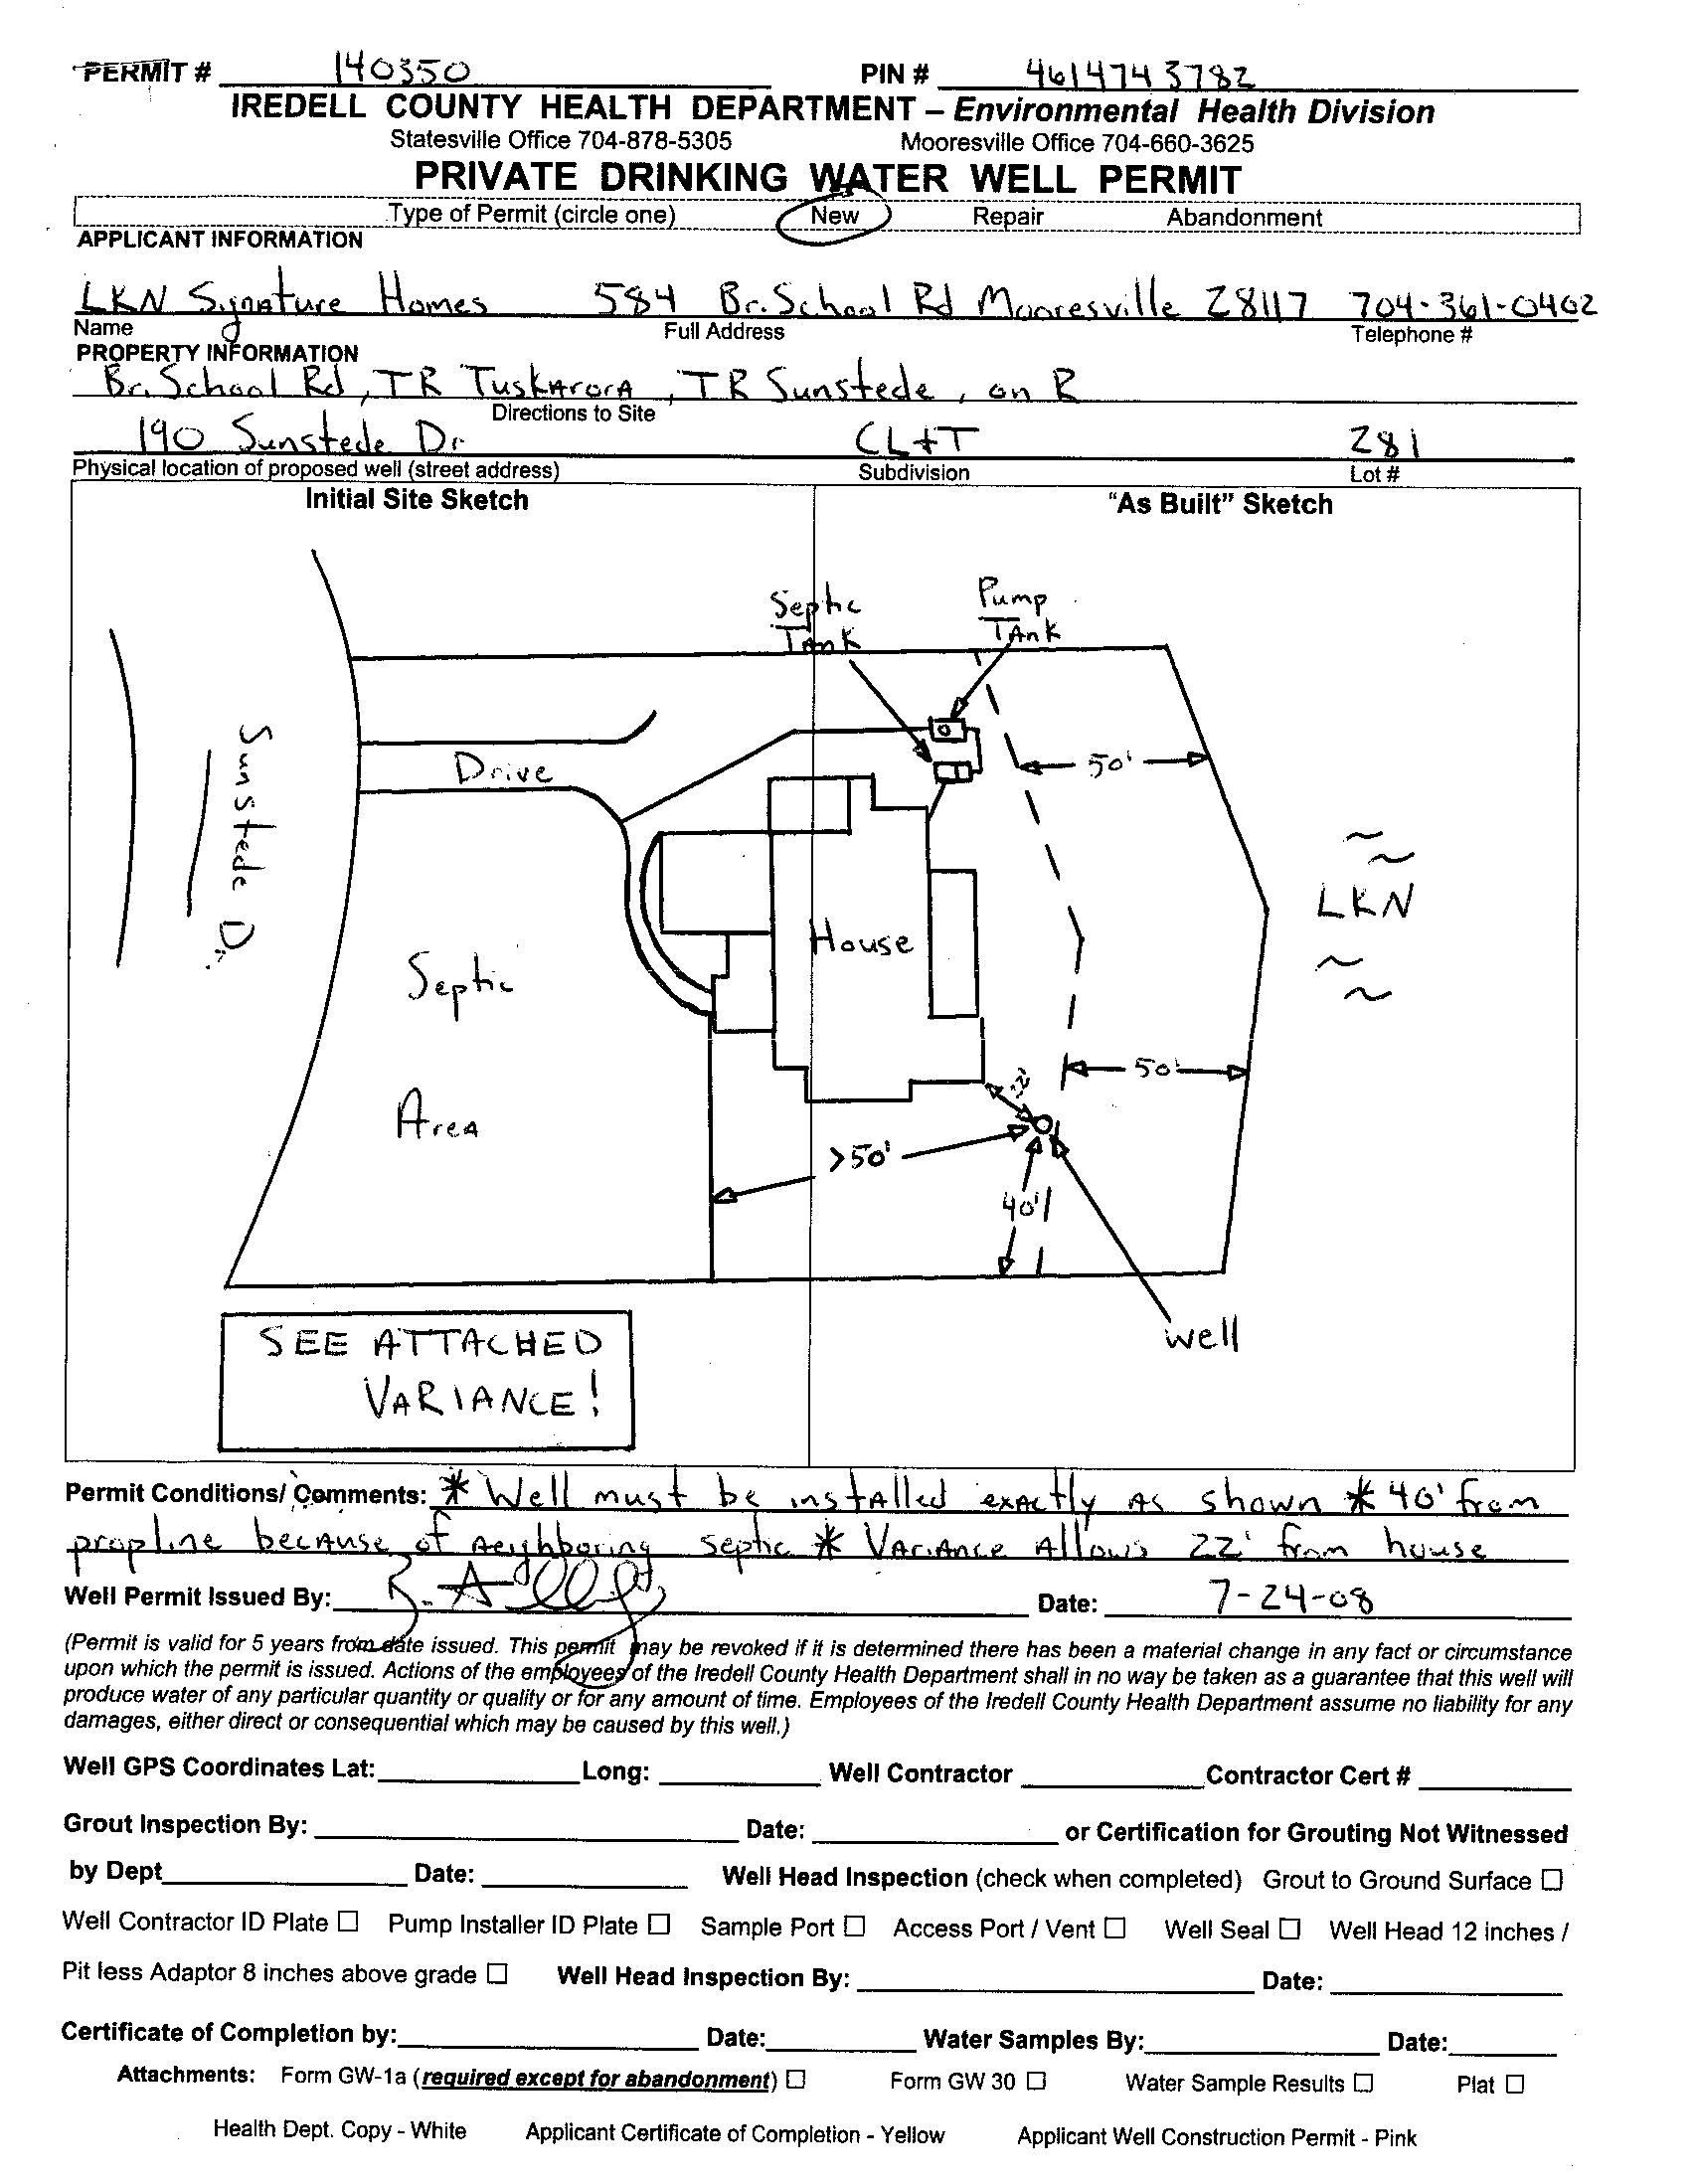 PERMIT # 140350 PIN # 4614743782
IREDELL COUNTY HEALTH DEPARTMENT – Environmental Health Division
Statesville Office 704-878-5305 Mooresville Office 704-660-3625
PRIVATE DRINKING WATER WELL PERMIT
Type of Permit (circle one) New Repair Abandonment
APPLICANT INFORMATION
LKN Signature Homes 584 Br. School Rd Mooresville 28117 704-361-0402
Name Full Address Telephone #
PROPERTY INFORMATION
Br. School Rd, TR Tuskarora, TR Sunstede, on R
Directions to Site
190 Sunstede Dr CL+T 281
Physical location of proposed well (street address) Subdivision Lot #
Initial Site Sketch "As Built" Sketch
Septic
Tank
Pump
Tank
Drive
50'
Sunstede Dr.
LKN
House
Septic
Area
50'
>50'
40'
well
SEE ATTACHED
VARIANCE!
Permit Conditions/ Comments: * Well must be installed exactly as shown * 40' from
propline because of neighboring septic * Variance Allows 22' from house
Well Permit Issued By: Date: 7-24-08
(Permit is valid for 5 years from date issued. This permit may be revoked if it is determined there has been a material change in any fact or circumstance
upon which the permit is issued. Actions of the employees of the Iredell County Health Department shall in no way be taken as a guarantee that this well will
produce water of any particular quantity or quality or for any amount of time. Employees of the Iredell County Health Department assume no liability for any
damages, either direct or consequential which may be caused by this well.)
Well GPS Coordinates Lat: Long: Well Contractor Contractor Cert #
Grout Inspection By: Date: or Certification for Grouting Not Witnessed
by Dept Date: Well Head Inspection (check when completed) Grout to Ground Surface ☐
Well Contractor ID Plate ☐ Pump Installer ID Plate ☐ Sample Port ☐ Access Port / Vent ☐ Well Seal ☐ Well Head 12 inches /
Pit less Adaptor 8 inches above grade ☐ Well Head Inspection By: Date:
Certificate of Completion by: Date: Water Samples By: Date:
Attachments: Form GW-1a (required except for abandonment) ☐ Form GW 30 ☐ Water Sample Results ☐ Plat ☐
Health Dept. Copy - White Applicant Certificate of Completion - Yellow Applicant Well Construction Permit - Pink